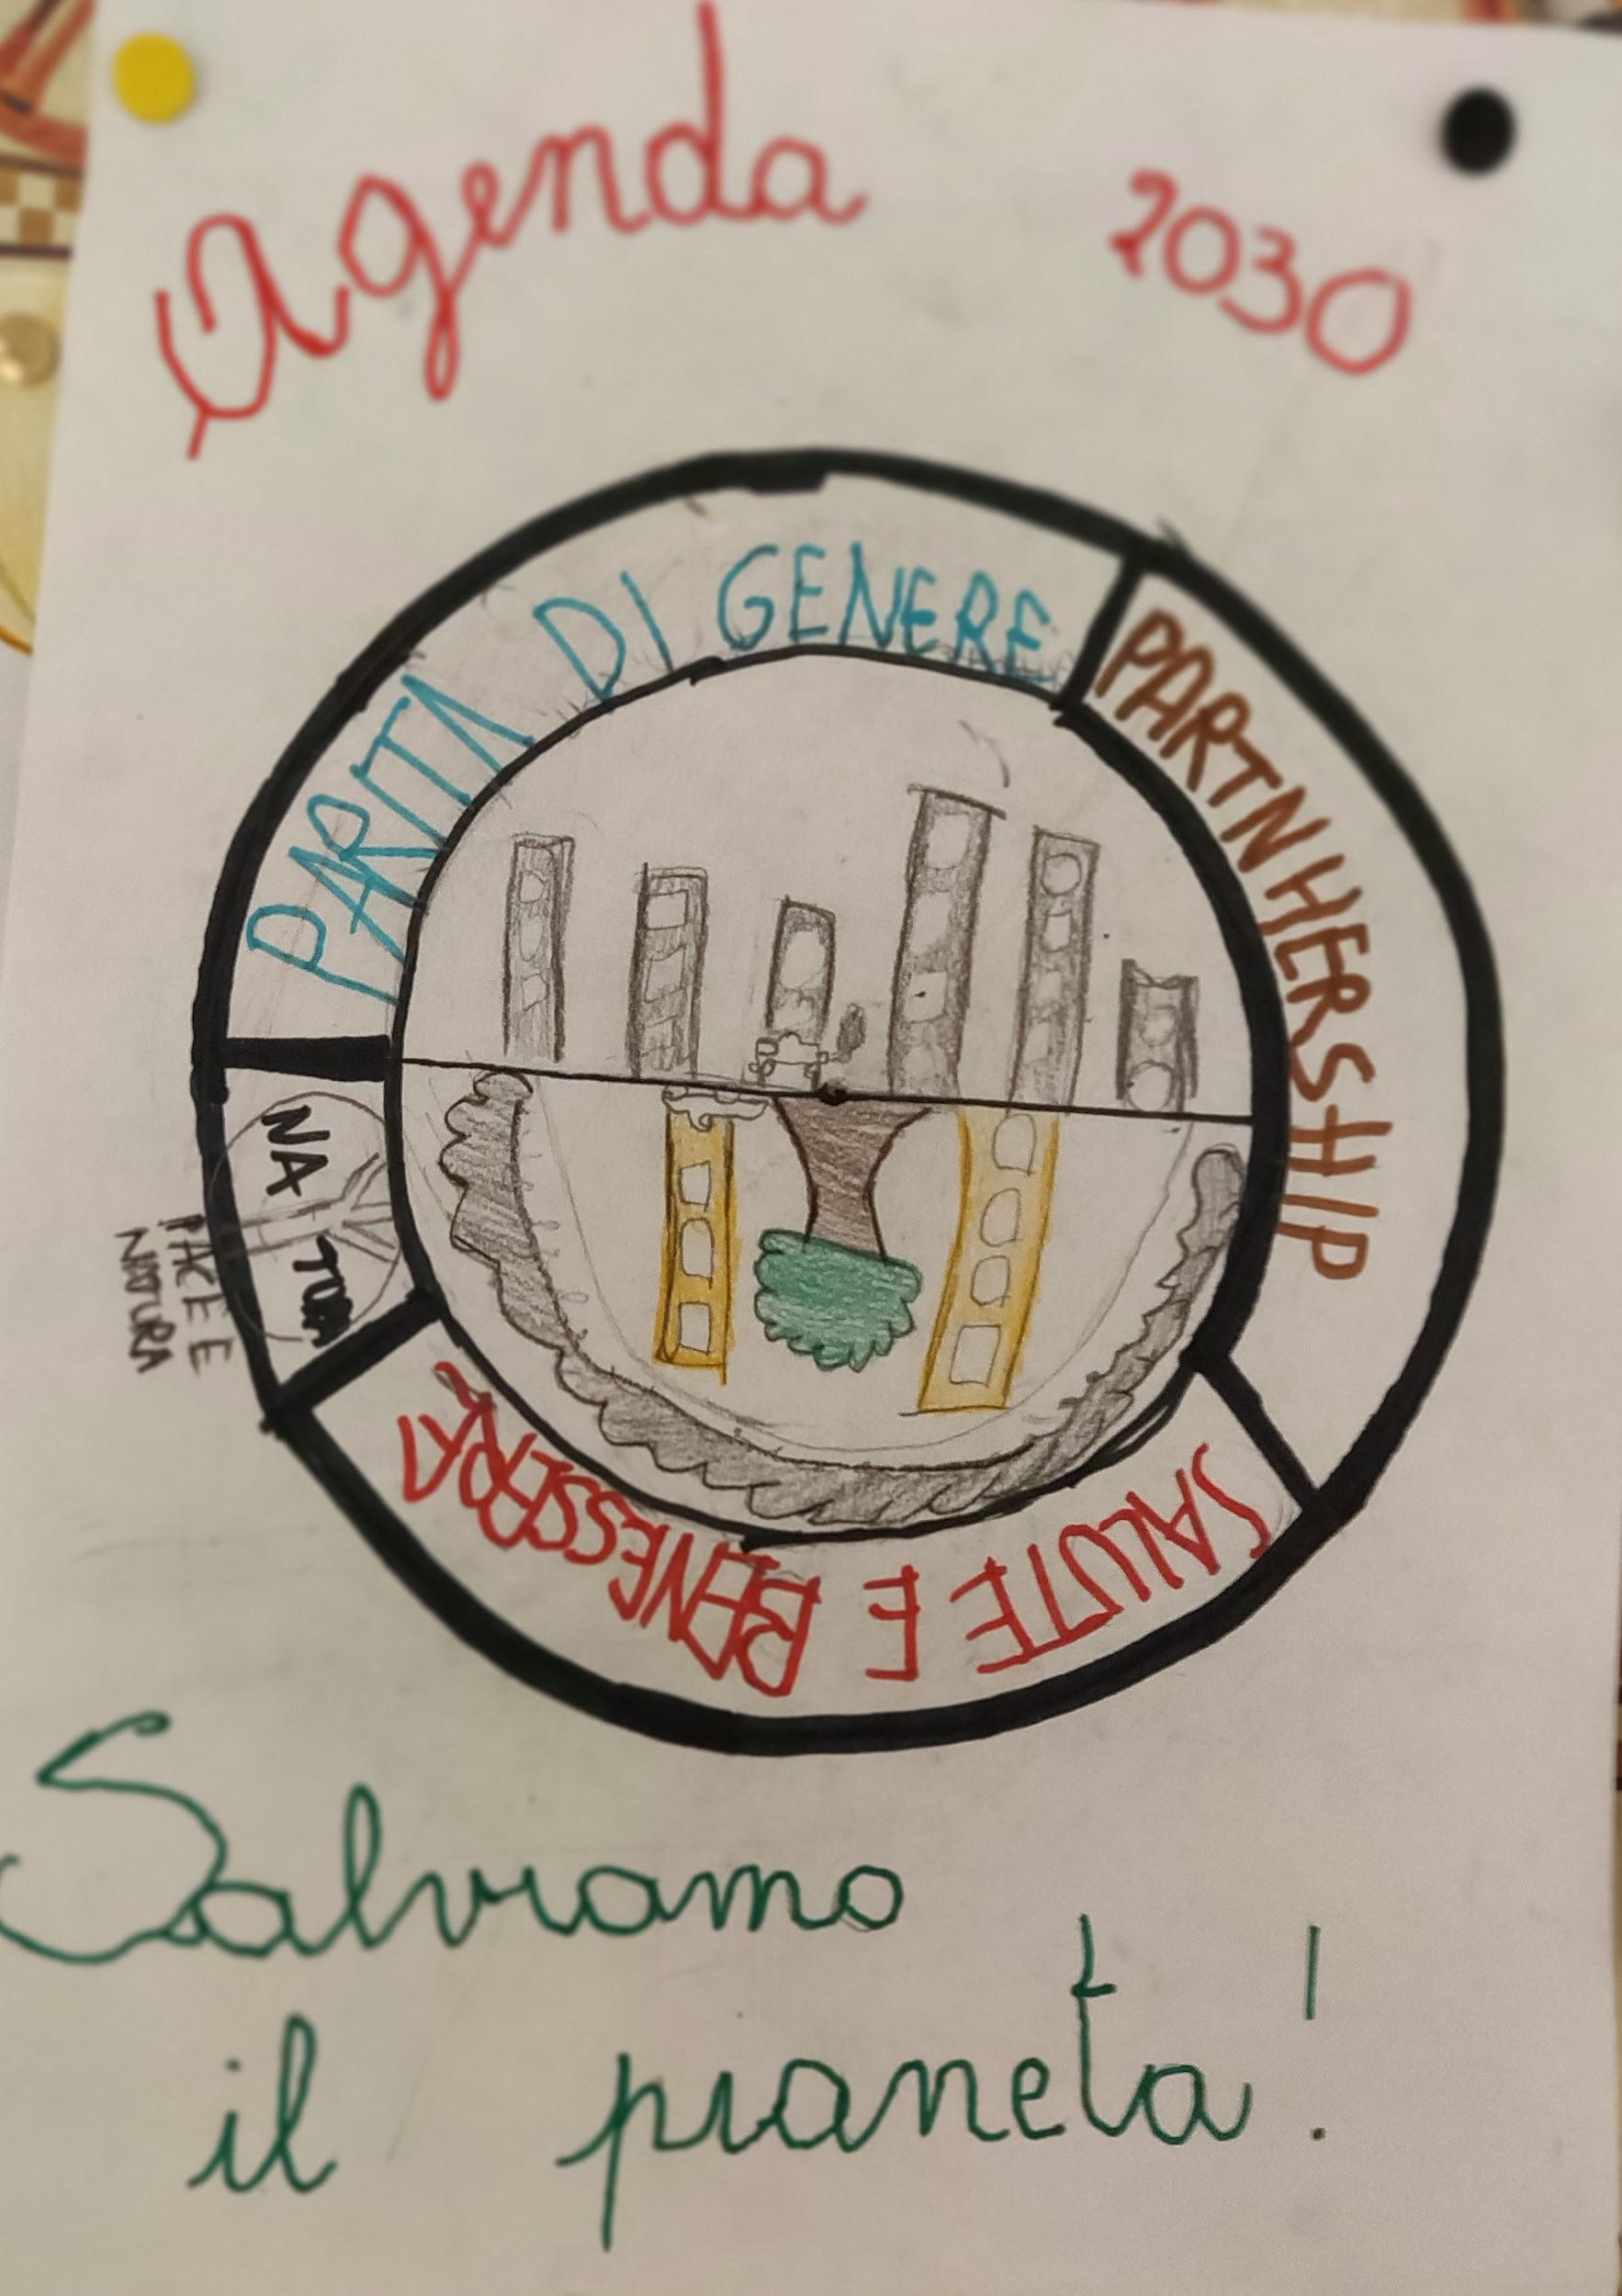 Agenda 2030
PARITA DI GENERE
PARTNHERSHIP
SALUTE E BENESSERA
NA
TURA
PACE E
NATURA
Salviamo
il pianeta!